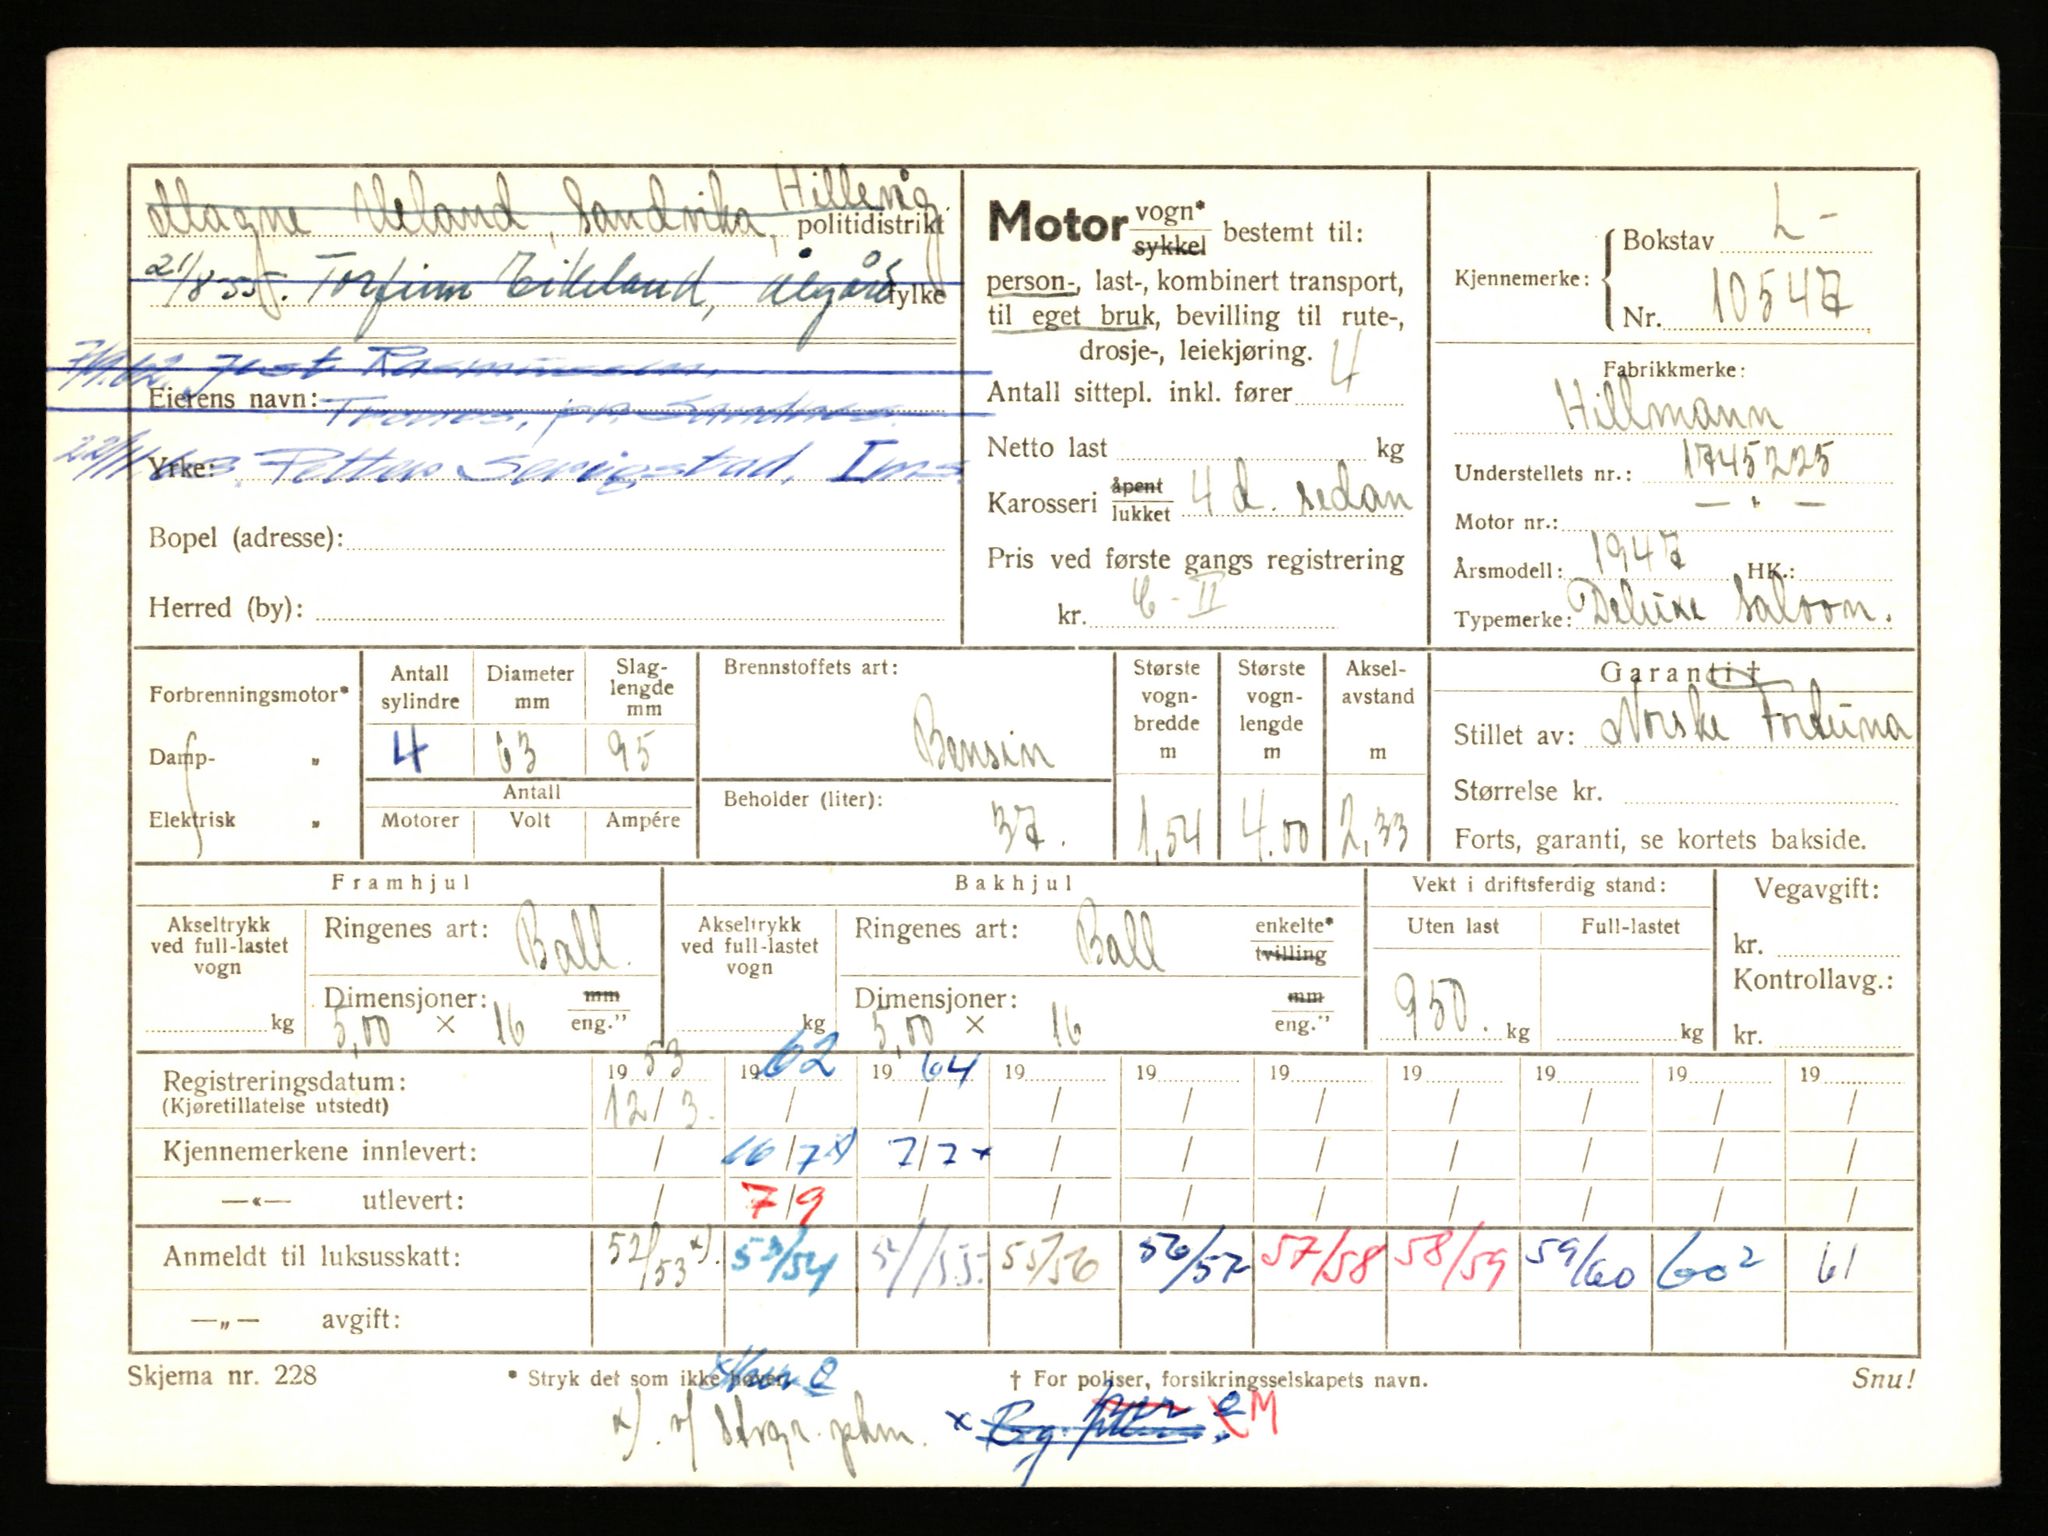 Magne Ueland, Sandvika, Hillevåg politidistrikt
21/8-55. Torfinn Eikeland, Ålgård fylke
7/9.62. Jost Rasmussen,
Eierens navn: Tronæs, pr. Sandnes.
22/11.63. Yrke: Petter Serigstad, Ims.
Bopel (adresse):
Herred (by):
Motor vogn* sykkel bestemt til:
person-, last-, kombinert transport,
til eget bruk, bevilling til rute-,
drosje-, leiekjøring.
Antall sittepl. inkl. fører 4
Netto last kg
Karosseri åpent lukket 4 d. sedan
Pris ved første gangs registrering
kr. C - II
Kjennemerke: Bokstav L-
Nr. 10547
Fabrikkmerke:
Hillmann
Understellets nr.: 1745225
Motor nr.: — " —
Årsmodell: 1947 HK.:
Typemerke: Deluxe Saloon.
Forbrenningsmotor*
Damp- "
Elektrisk "
Antall sylindre Diameter mm Slag-lengde mm
4 63 95
Antall
Motorer Volt Ampére
Brennstoffets art:
Bensin
Beholder (liter):
37.
Største vogn-bredde m Største vogn-lengde m Aksel-avstand m
1,54 4.00 2,33
Garanti †
Stillet av: Norske Fortuna
Størrelse kr.
Forts, garanti, se kortets bakside.
Framhjul
Akseltrykk ved full-lastet vogn kg
Ringenes art: Ball.
Dimensjoner: mm eng."
5,00 × 16
Bakhjul
Akseltrykk ved full-lastet vogn kg
Ringenes art: Ball enkelte* tvilling
Dimensjoner: mm eng."
5,00 × 16
Vekt i driftsferdig stand:
Uten last Full-lastet
950. kg kg
Vegavgift:
kr.
Kontrollavg.:
kr.
Registreringsdatum: 1953 1962 1964 19 19 19 19 19 19 19
(Kjøretillatelse utstedt) 12/3. / / / / / / / / /
Kjennemerkene innlevert: / 16/7x) 7/7x / / / / / / /
—«— utlevert: / 7/9 / / / / / / / /
Anmeldt til luksusskatt: 52/53x). 53/54 54/55. 55/56 56/57 57/58 58/59 59/60 60² 61
—„— avgift:
Skjema nr. 228
* Stryk det som ikke høver.
† For poliser, forsikringsselskapets navn.
Snu!